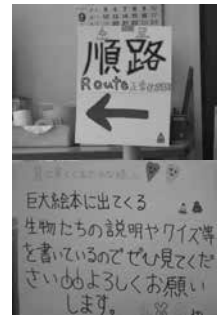 9
順路
Route
巨大絵本に出てくる
生物たちの説明やクイズ等
を書いているのでぜひ見てくだ
さい。よろしくお願い
します。